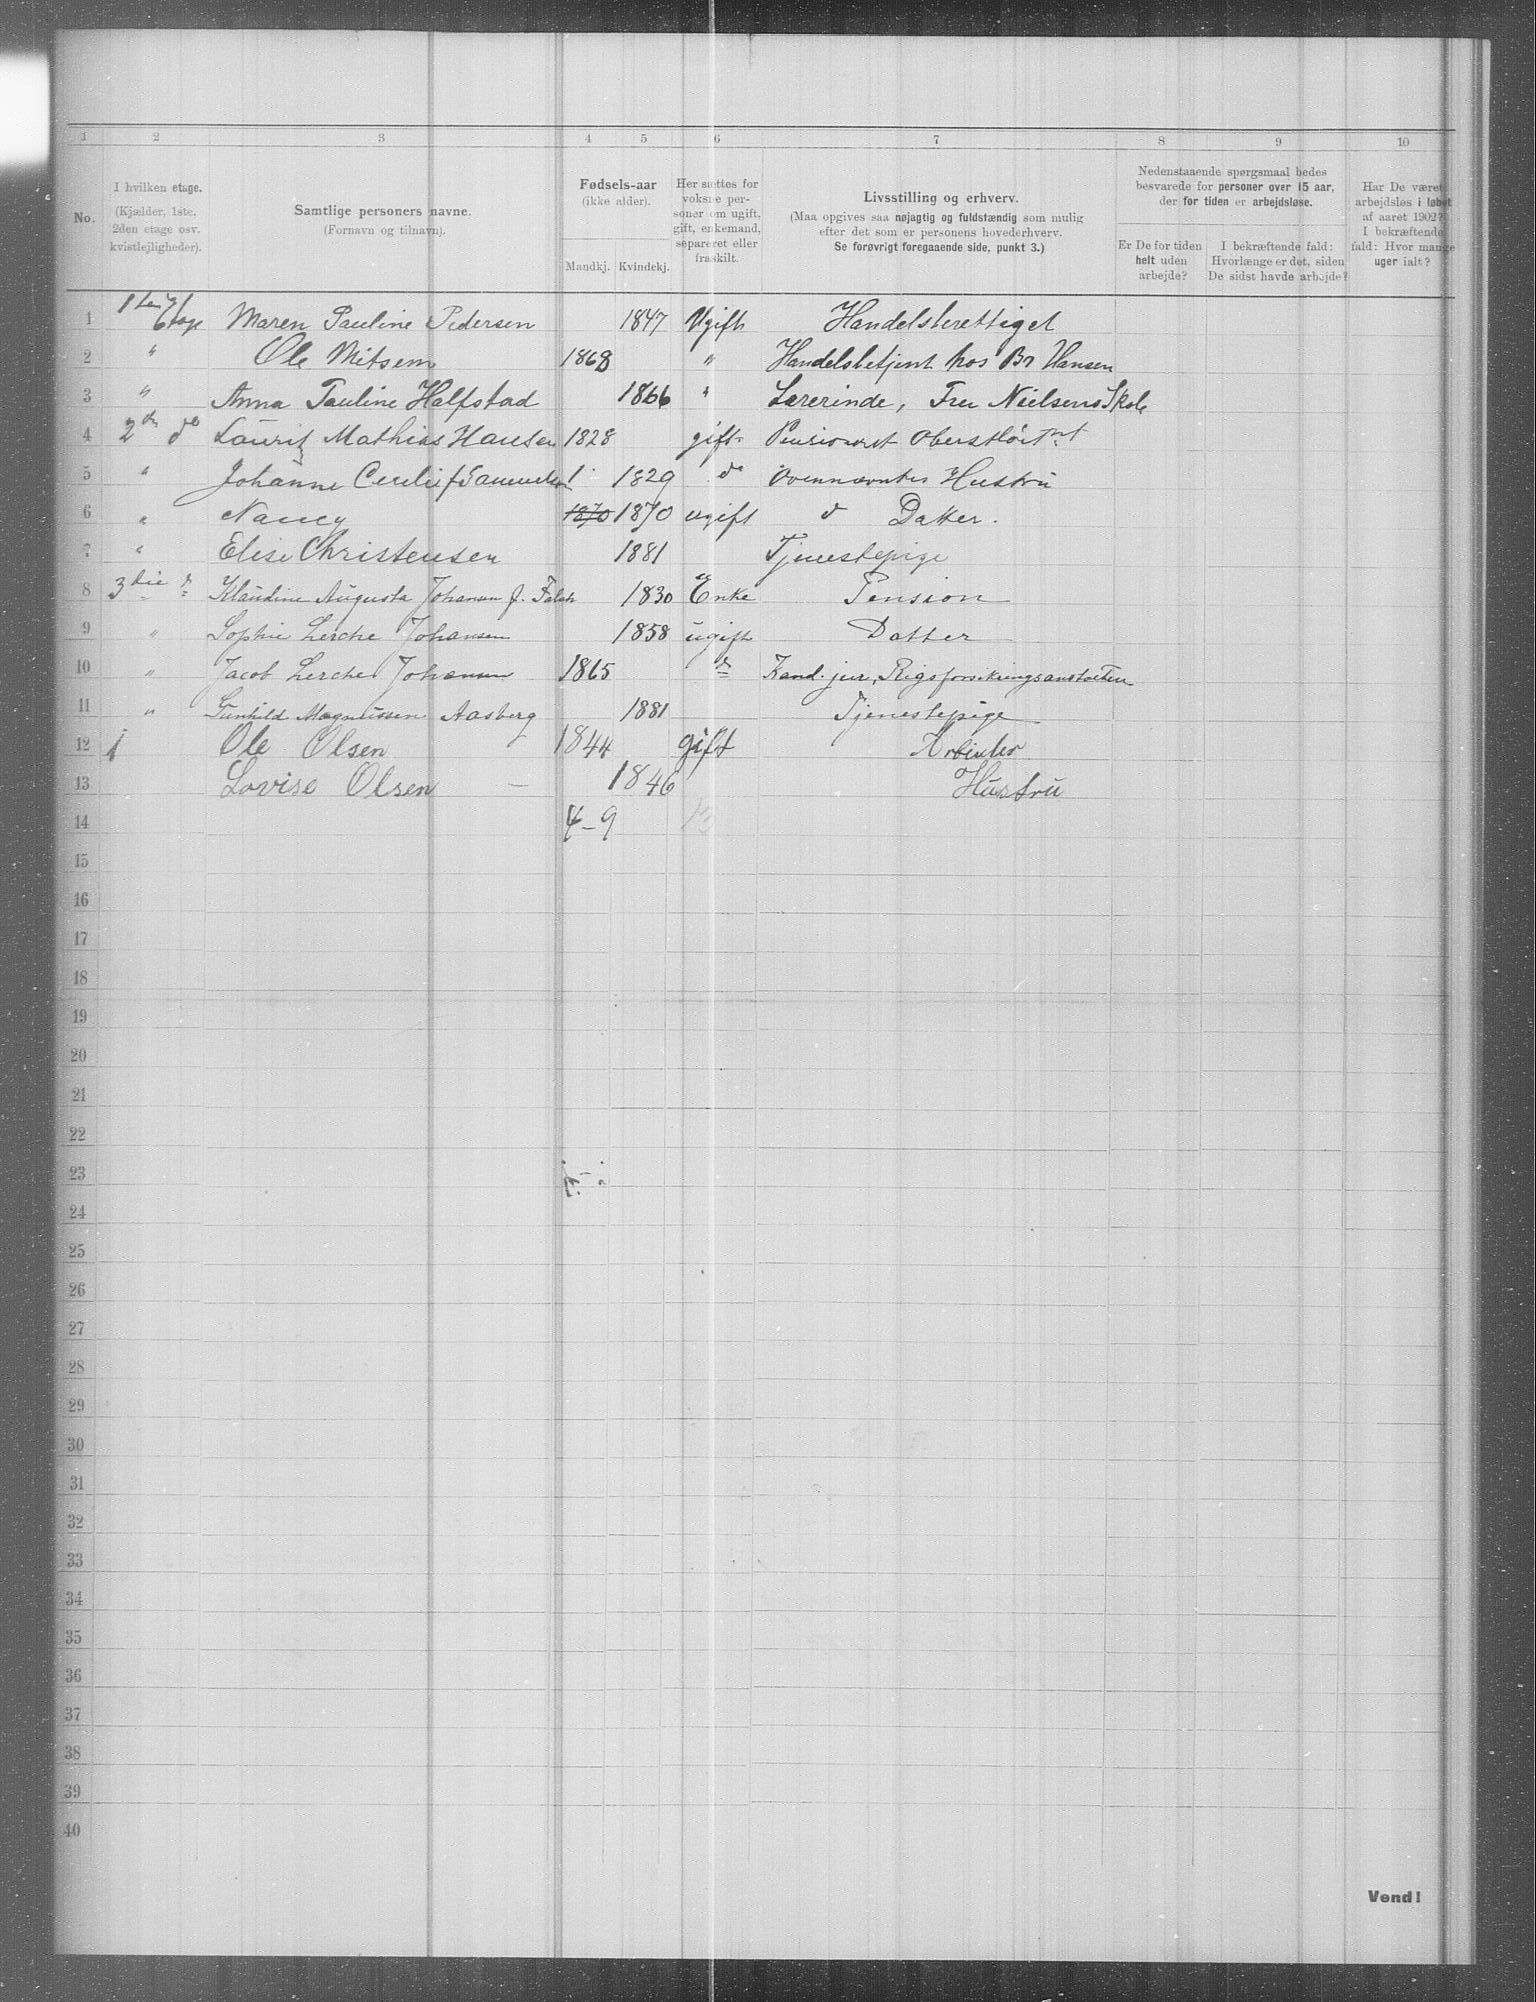 1 2 3 4 5 6 7 8 9 10
No.
I hvilken etage.
(Kjælder, 1ste.
2den etage osv.
kvistlejligheder).
Samtlige personers navne.
(Fornavn og tilnavn).
Fødsels-aar
(ikke alder).
Mandkj. Kvindekj.
Her sættes for
voksne per-
soner om ugift,
gift, enkemand,
separeret eller
fraskilt.
Livsstilling og erhverv.
(Maa opgives saa nøjagtig og fuldstændig som mulig
efter det som er personens hovederhverv.
Se forøvrigt foregaaende side, punkt 3.)
Nedenstaaende spørgsmaal bedes
besvarede for personer over 15 aar,
der for tiden er arbejdsløse.
Er De for tiden
helt uden
arbejde?
I bekræftende fald:
Hvorlænge er det, siden
De sidst havde arbejde?
Har De været
arbejdsløs i løbet
af aaret 1902?
I bekræftende
fald: Hvor mange
uger ialt?
1 1ste Etage Maren Pauline Pedersen 1847 Ugift Handelsberettiget
2 " Ole 1868 " Handelsbetjent hos Br Hansen
3 " Anna Pauline Halfstad 1866 " Lærerinde, Fru Nielsens Skole
4 2den do Laurits Mathias Hansen 1828 gift Pensioneret Oberstløitnt
5 " Johanne 1829 do Ovennævntes Hustru
6 " Nancy 1870 1870 ugift d Datter.
7 " Elise Christensen 1881 Tjenestepige
8 3die Klaudine Augusta Johansen f. 1830 Enke Pension
9 " Sophie Lerche Johansen 1858 ugift Datter
10 " Jacob Lerche Johansen 1865 Kand. jur, Rigsforsikringsanstalten
11 " Gunhild Magnussen Aasberg 1881 Tjenestepige
12 1 Ole Olsen 1844 gift Arbeider
13 Lovise Olsen — 1846 Hustru
14 4-9 13
15
16
17
18
19
20
21
22
23
24
25
26
27
28
29
30
31
32
33
34
35
36
37
38
39
40
Vend!